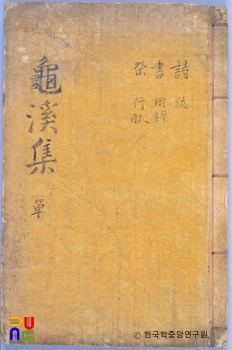 詩 跋
書 附錄
祭 行狀
龜溪集 單
© 한국학중앙연구원